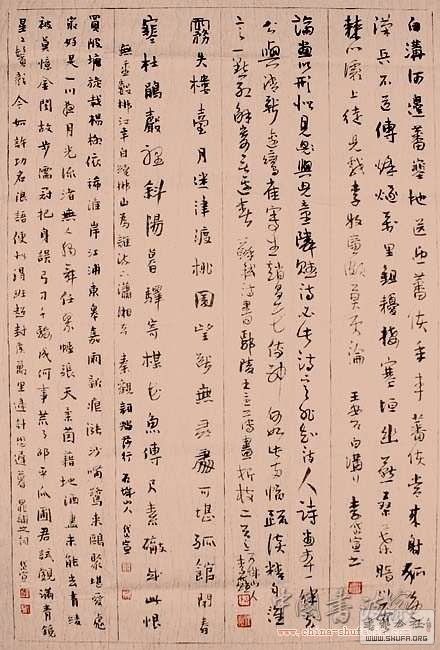 白溝河邊蕃塞地送迎蕃使年年事蕃使常來射狐兔
漢兵不道傳烽燧萬里鋤耰接塞垣幽燕桑葉暗川原
棘門灞上徒兒戲李牧廉頗莫更論 王安石白溝行 李岱宣書
論畫以形似見與兒童鄰賦詩必此詩定非知詩人詩畫本一律天
工與清新邊鸞雀寫生趙昌花傳神何如此兩幅疏淡含精勻誰
言一點紅解寄無邊春 蘇軾詩書鄢陵王主簿所畫折枝二首
霧失樓臺月迷津渡桃園望斷無尋處可堪孤館閉春
寒杜鵑聲裡斜陽暮驛寄梅花魚傳尺素砌成此恨
無重數郴江幸自繞郴山為誰流下瀟湘去 秦觀詞踏莎行 山人岱宣
買陂塘旋栽楊柳依稀淮岸江浦東皋嘉雨新痕漲沙嘴鷺來鷗聚堪愛處
最好是一川夜月光流渚無人獨舞任翠幄張天柔茵藉地酒盡未能去青綾
被莫憶金閨故步儒冠把身誤弓刀千騎成何事荒了邵平瓜圃君試覷滿青鏡
星星鬢影今如許功名浪語便似得班超封侯萬里歸計恐遲暮 晁補之詞 岱宣
www.china-shufajia.com
WWW.SHUFA.COM